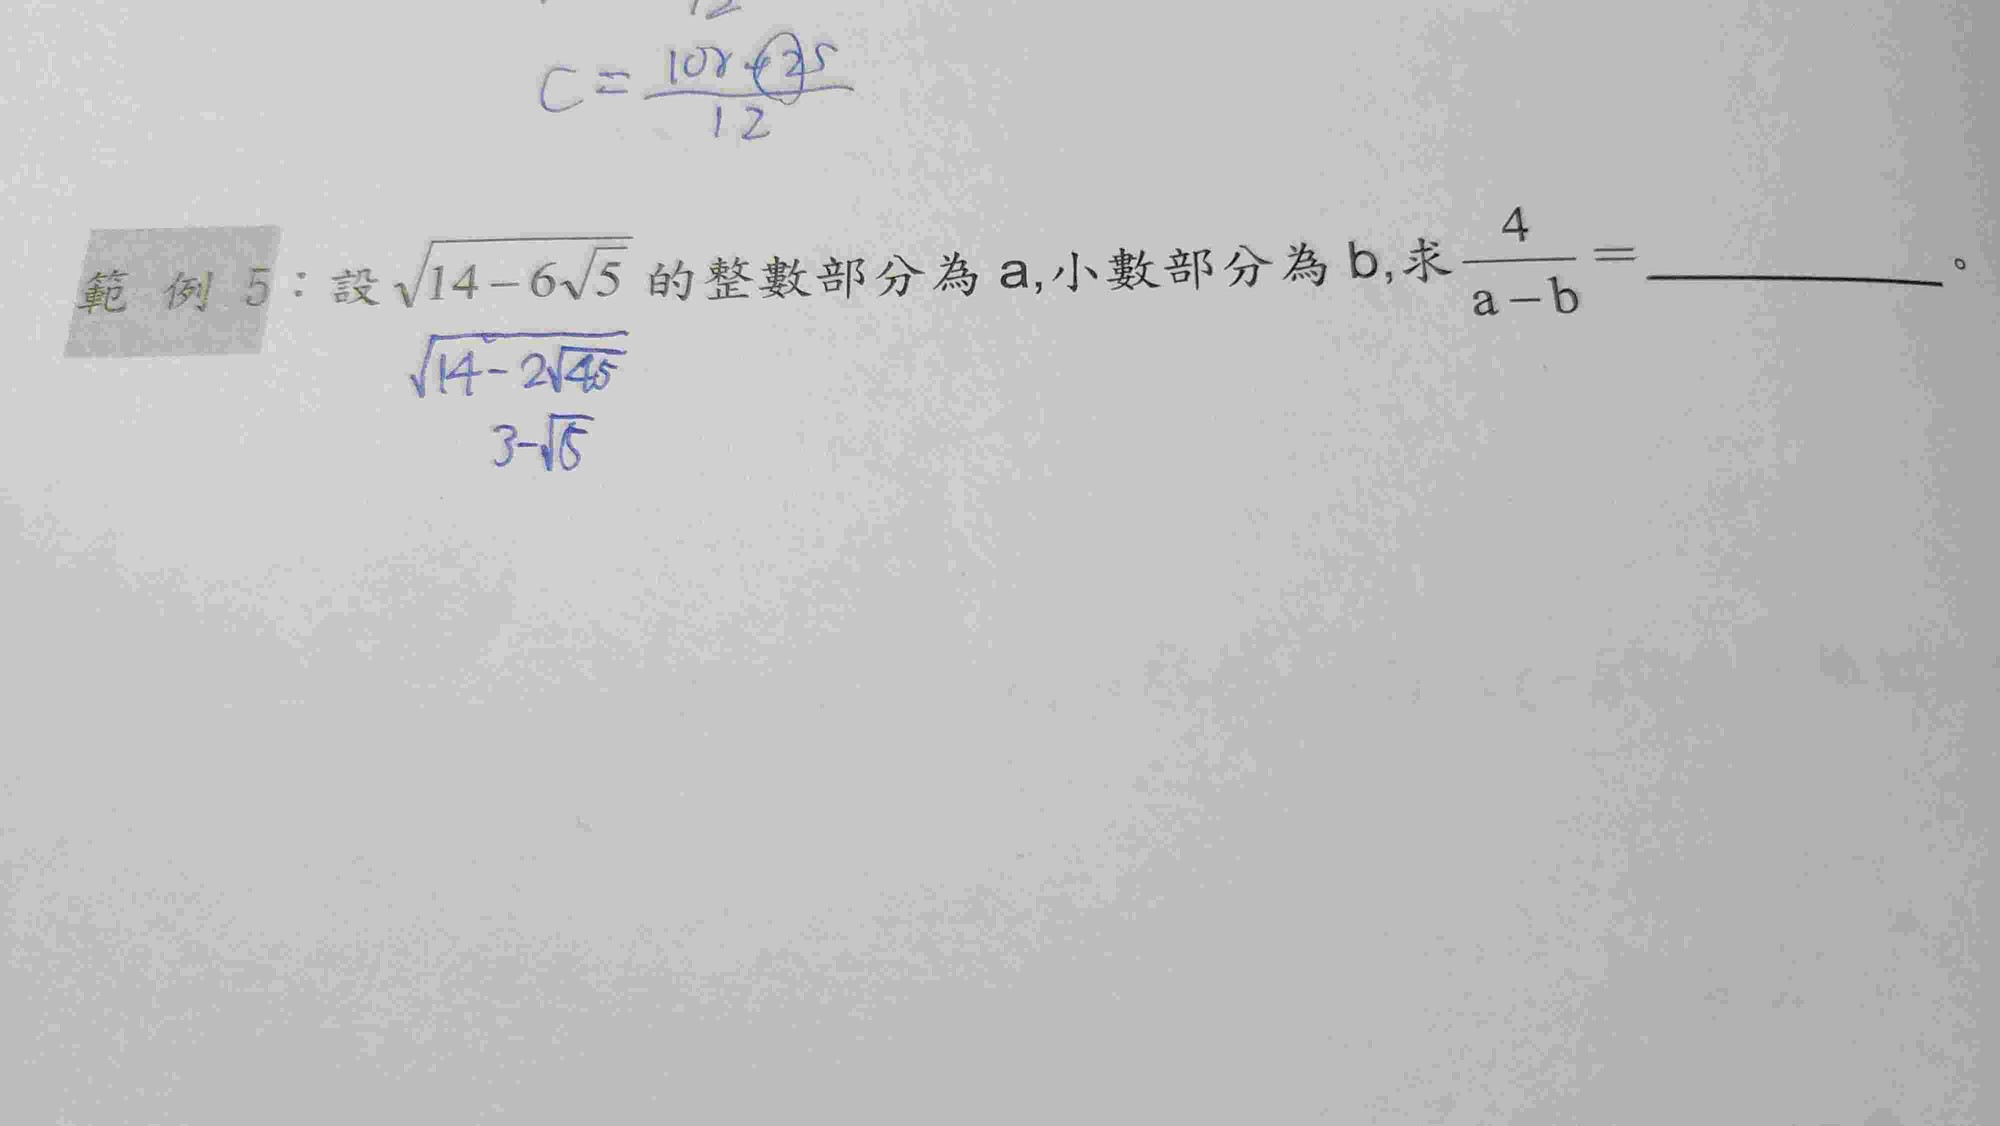 12
C = \frac{10r+25}{12}
範 例 5：設 \sqrt{14-6\sqrt{5}} 的整數部分為 a,小數部分為 b,求 \frac{4}{a-b} = ________。
\sqrt{14-2\sqrt{45}}
3-\sqrt{5}